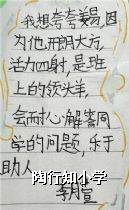 我想夸夸姜易,因
为他开朗大方,
活力四射,是班
上的领头羊,
会耐心解答同
学的问题,乐于
助人
李月萱
陶行知小学